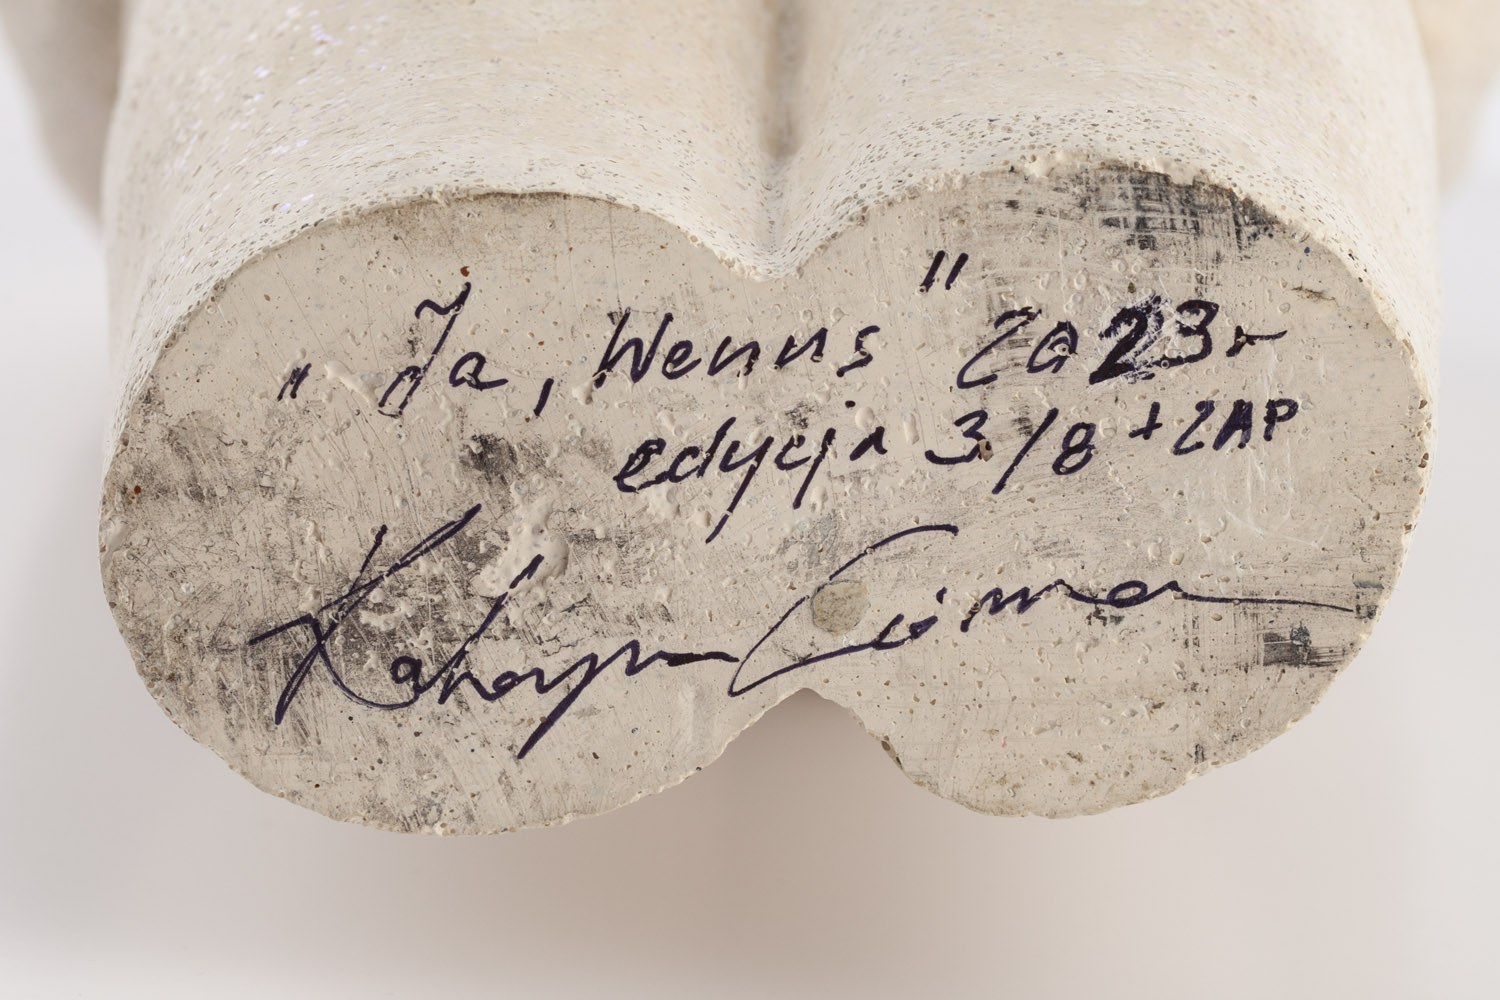 „Ja, Wenus" 2023r
edycja 3/8 + 2AP
Katarzyna